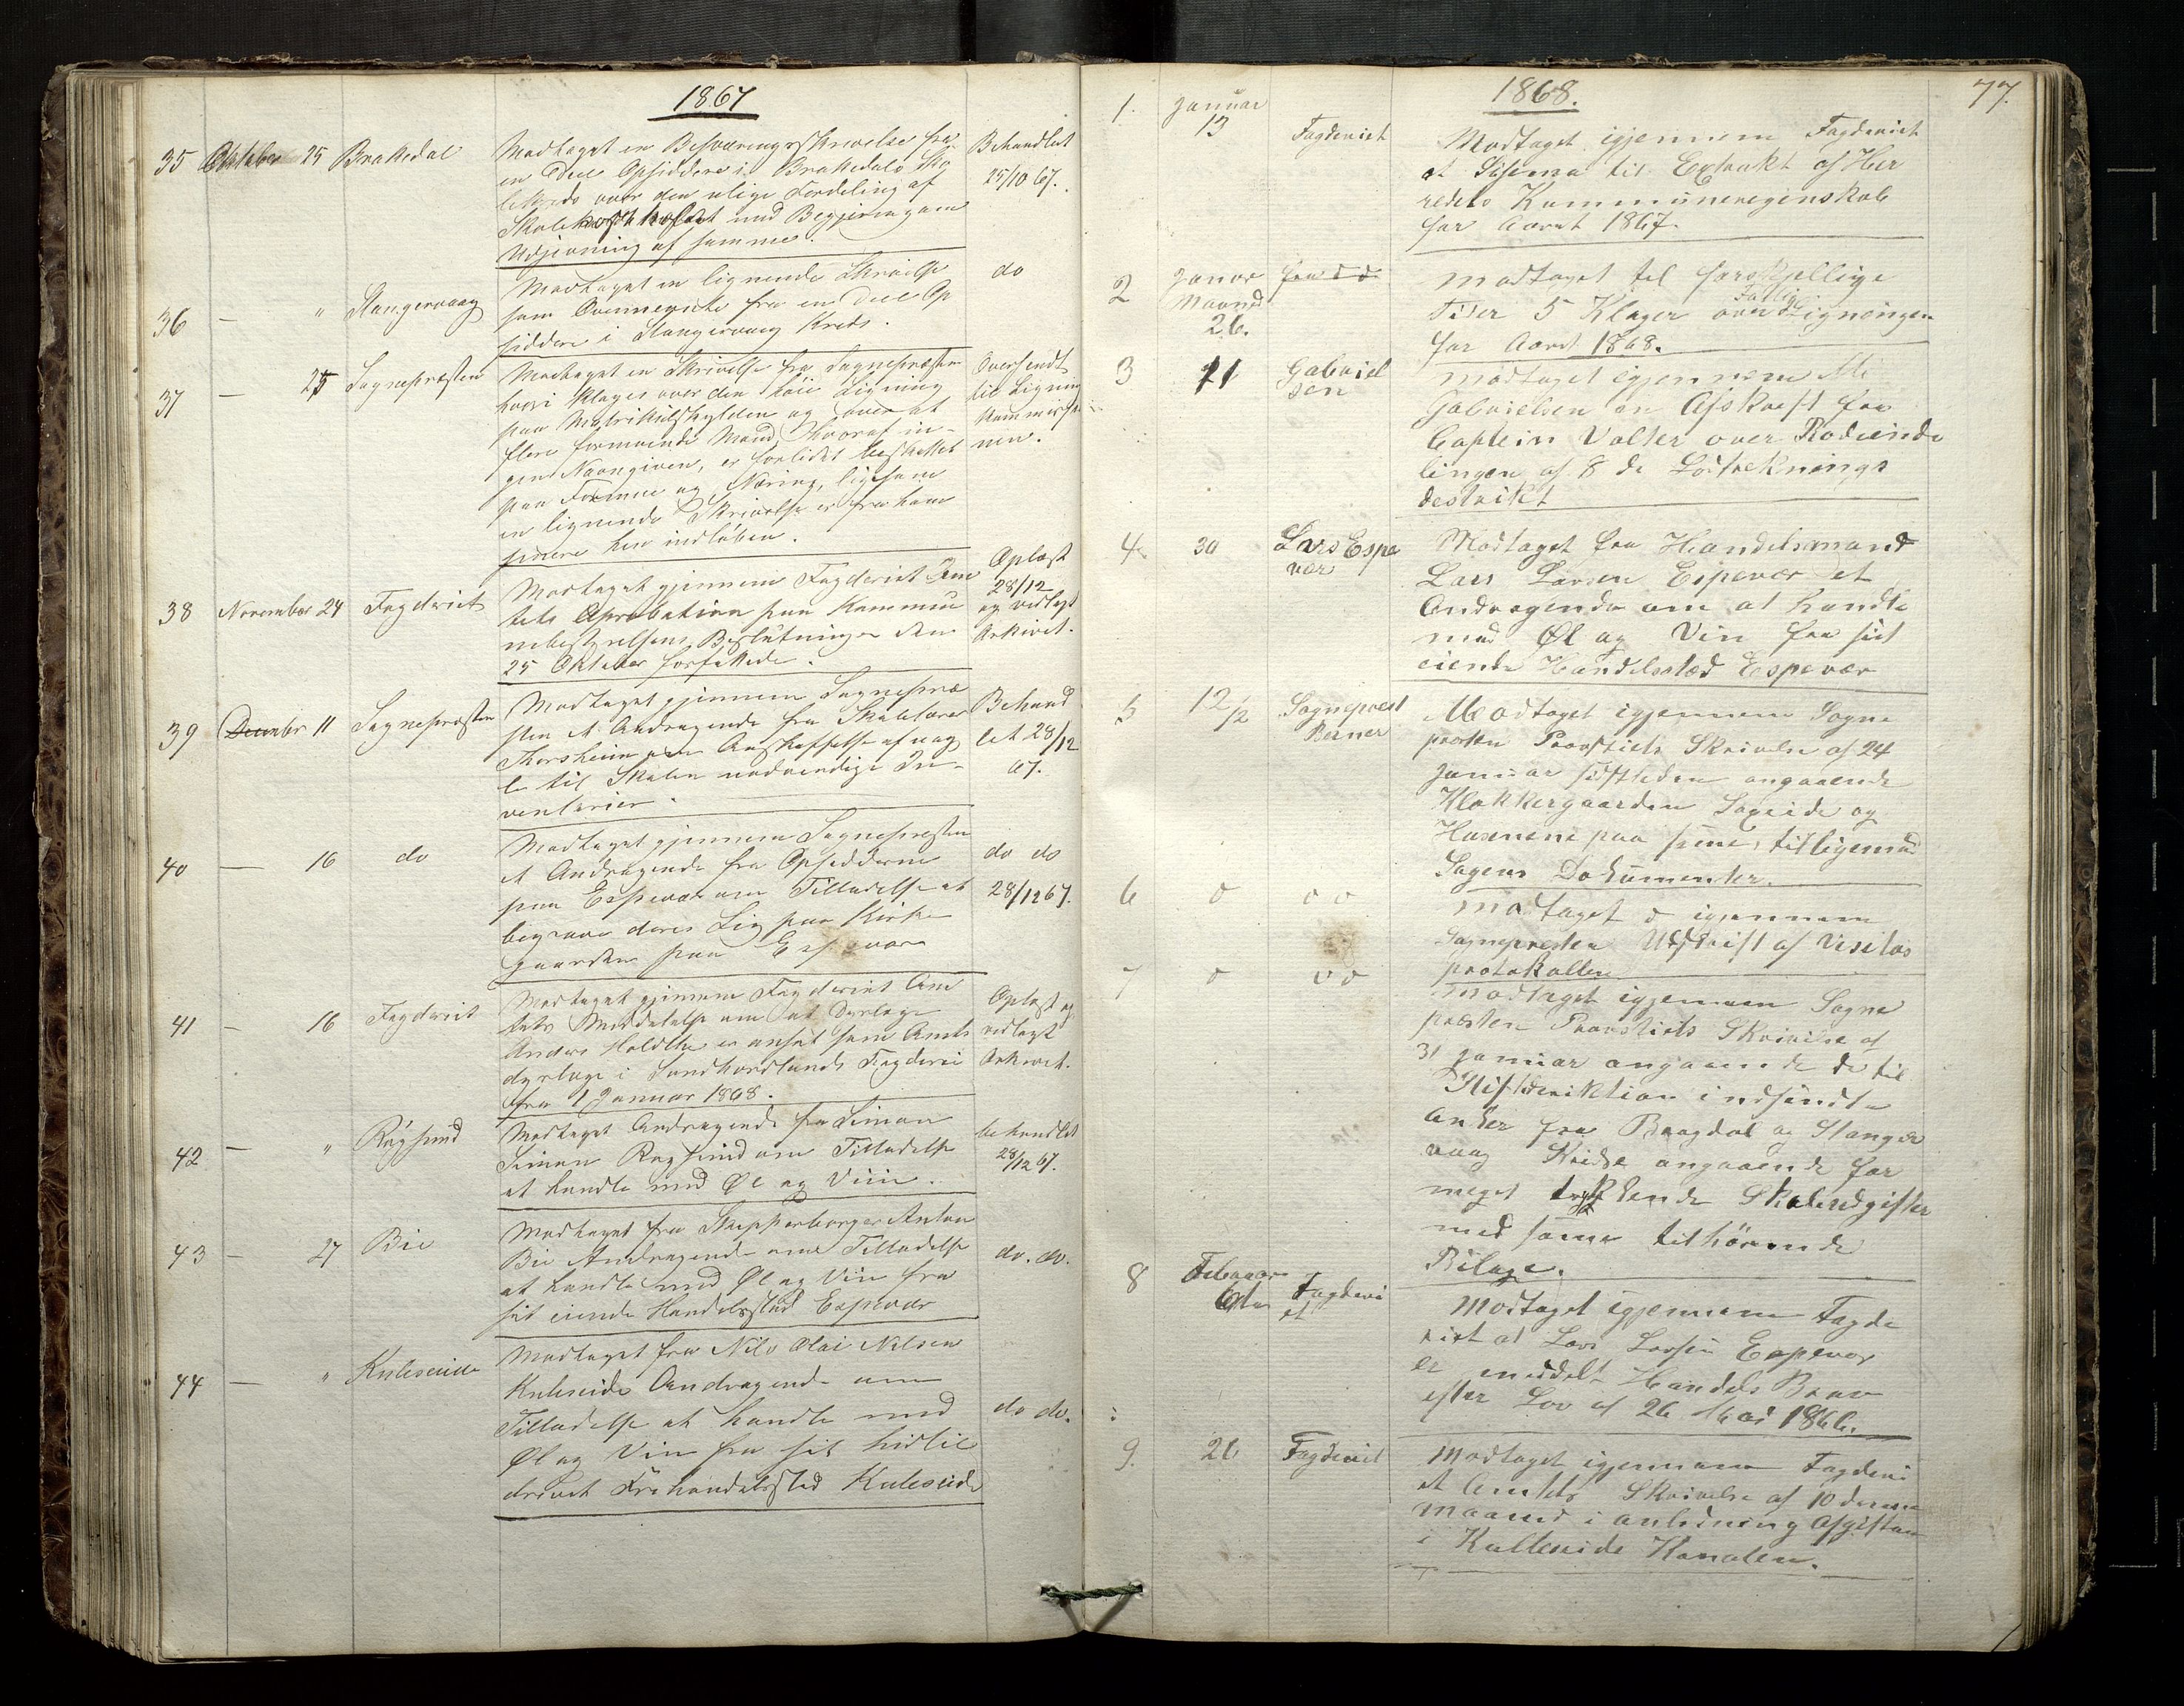 1867
35 Oktober 25 Brakedal
Modtaget en Besværingsskrivelse fra
en Deel Opsiddere i Brakedals Sko
lekreds over den ulige Fordeling af
Skole med Begjæring om
Udjevning af samme.
Behandlet
25/10 67.
36 — " Stangervaag
Modtaget en lignende Skrivelse
som Ovennevnte fra en Deel Op
siddere i Stangervaag Kreds.
do
37 — 25 Sognepræsten
Modtaget en Skrivelse fra Sognepræsten
hvori klages over den høie Ligning
paa Matrikulskylden og over at
flere formuende Mænd, hvoraf in-
gen Navngiven, er forlidet beskattet
paa Formue og Næring, ligesom
en lignende Skrivelse er fra ham
senere hen indløben.
Oversendt
til Ligning
kommissio
nen.
38 November 24 Fogderiet
Modtaget gjennem Fogderiet Am
tets Aprobation paa Kommu
nebestyrelsens Beslutninger den
25 Oktober forfattede.
Oplæst
28/12
og vedlagt
Arkivet.
39 December 11 Sognepræsten
Modtaget gjennem Sognepræ
sten et Andragende fra Skolelærer
Thorsheim om Anskaffelse af nog
le til Skolen nødvendige In-
ventarier.
Behand
let 28/12
67.
40 — 16 do
Modtaget gjennem Sognepræsten
et Andragende fra Opsidderne
paa Espevær om Tilladelse at
begrave deres Lig paa Kirke
gaarden paa Espevær
do do
28/12 67.
41 — 16 Fogderiet
Modtaget gjennem Fogderiet Am
tets Meddelelse om at Dyrlæge
Anders Holdthe er ansat som Amts
dyrlæge i Søndhordlands Fogderi
fra 1 Januar 1868.
Oplæst og
vedlagt
Arkivet.
42 — " Røgsund
Modtaget Andragende fra Simon
Simon Røgsund om Tilladelse
at handle med Øl og Viin.
behandlet
28/12 67.
43 — 27 Bie
Modtaget fra Skipperborger Anton
Bie Andragende om Tilladelse
at handle med Øl og Viin fra
sit eiende Handelssted Espevær
do. do.
44 — " Kuleseide
Modtaget fra Nils Olai Nilsen
Kuleseide Andragende om
Tilladelse at handle med
Øl og Vin fra sit hidtil
drevet Frihandelssted Kuleseide
do do.
1868.
77.
1. Januar
13 Fogderiet
Modtaget igjennem Fogderiet
et Schema til Extrakt af Her
redets Kommuneregnskab
for Aaret 1867.
2 Januar
Maaned
26.
modtaget til forskjellige
Tider 5 Klager over Fattigligningen
for Aaret 1868.
3 21 Gabriel
sen
modtaget igjennem M.
Gabrielsen en Afskrift fra
Captein Valter over Rodeinde
lingen af 8 de Lodtrekningx
destrikt
4 30 Lars Espe
vær
Modtaget fra Handelsmand
Lars Larsen Espevær et
Andragende om at handle
med Øl og Vin fra sit
eiende Handelssted Espevær
5 12/2 Sognepræst
Berner
Modtaget igjennem Sogne
præsten Provstiets Skrivelse af 24
Januar sidstleden angaaende
Klokkergaarden Søreide og
Husenene paa same, tilligemed
Sagens Dokumenter.
6 d do
modtaget d igjennem
Sognepresten Udskrift af Visitas
protokollen
7 d do
modtaget igjennem Sogne
præsten Provstiets Skrivelse af
31 Januar angaaende de til
Stiftsdirektion indsendte
Anker fra Braagdal og Stanger
vaag Kredse angaaende for
meget trykkende Skoleudgifter
med same tilhørende
Bilage.
8 Februar
6te Fogderi
et
Modtaget igjennem Fogde
riet at Lars Larsen Espevær
er meddelt Handels Brev
efter Lov af 26 Mai 1866.
9. 26 Fogderiet
Modtaget igjennem Fogderi
et Amtets Skrivelse af 10 denne
maaned i anledning Afgiften
i Kulleseide Kanalen.